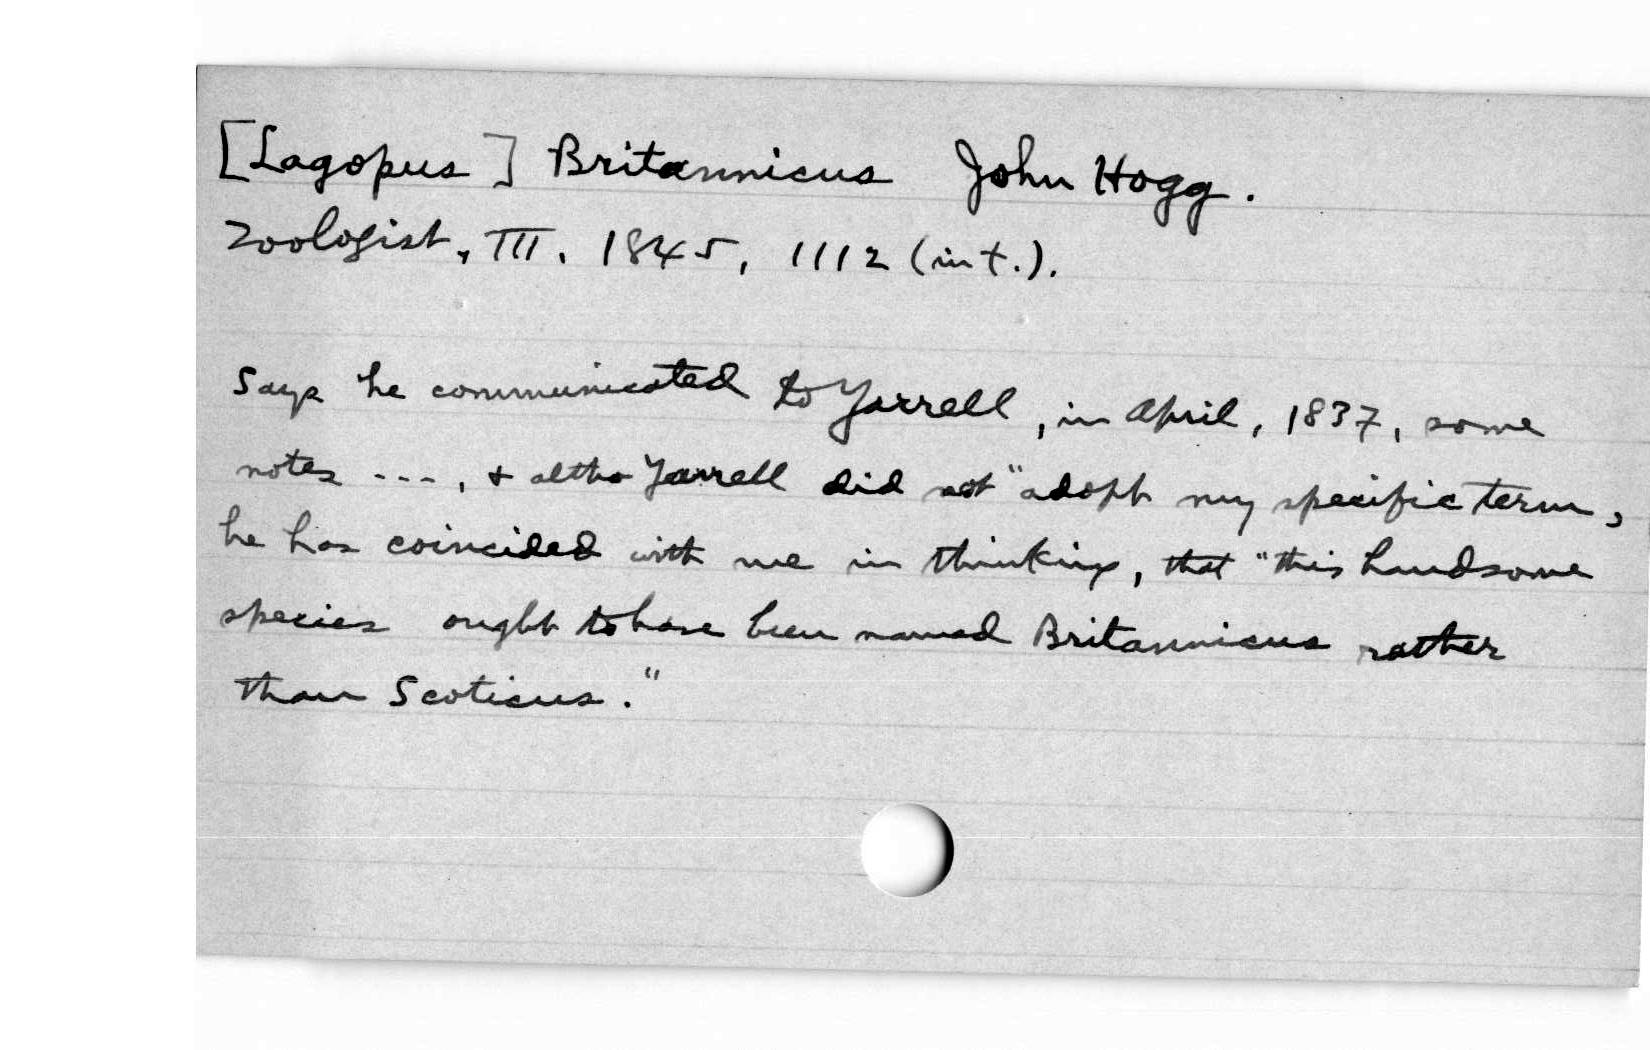 [Lagopus] Britannicus John Hogg.
Zoologist, III. 1845, 1112 (in t.).
Says he communicated to Yarrell, in April, 1837, some
notes ---, & altho Yarrell did not "adopt my specific term,
he has coincided with me in thinking, that "this handsome
species ought to have been named Britannicus rather
than Scoticus."